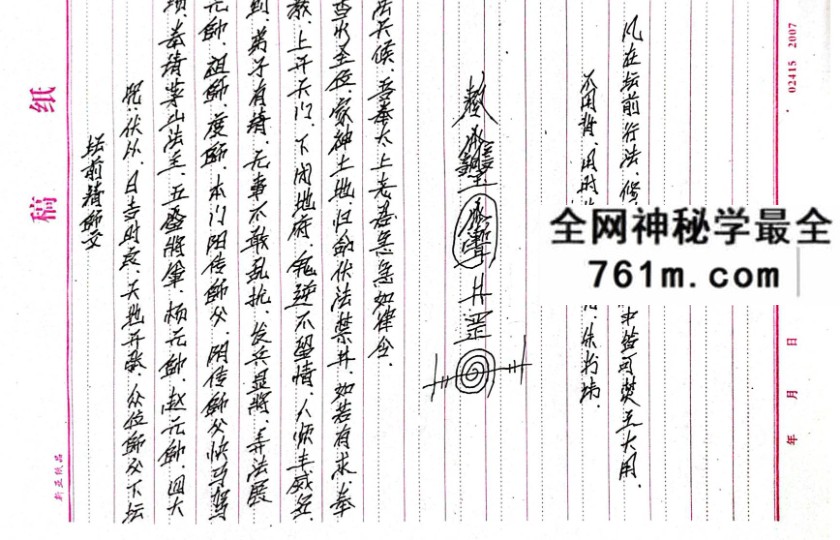 稿 纸
新亚纸品
坛前请师文
咒:伏以、日吉时良、天地开张、众位师父下坛
奉请茅山法主、五雷将军、杨元帅、赵元帅、四大
元帅、祖师、度师、本门阳传师父、阴传师父快马驾
到、弟子有请、无事不敢乱扰、发兵显将、弄法展
教、上开天门、下闭地府、鬼逆不留情、人
水圣位、家神土地、归命伏法禁井、如若有求、奉
法天候、吾奉太上老君急急如律令、
敕 井罡
不用 用时 朱书
凡在坛前行法、修 中皆可焚 大用、
全网神秘学最全
761m.com
年 月 日
02415 2007